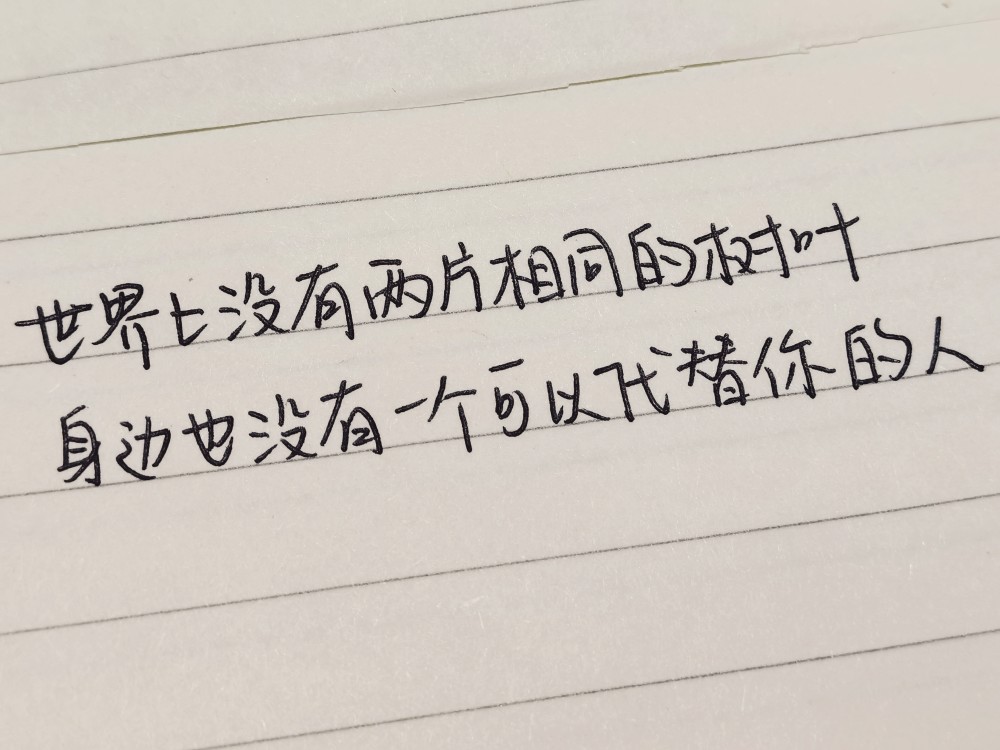 世界上没有两片相同的树叶
身边也没有一个可以代替你的人